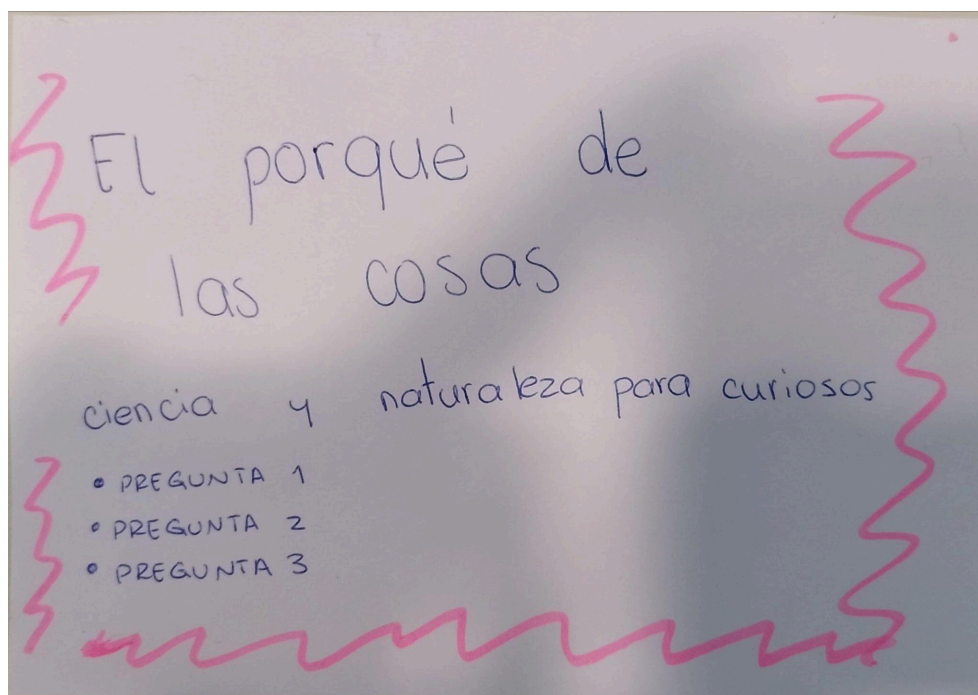 El porqué de
las cosas
ciencia y naturaleza para curiosos
• PREGUNTA 1
• PREGUNTA 2
• PREGUNTA 3